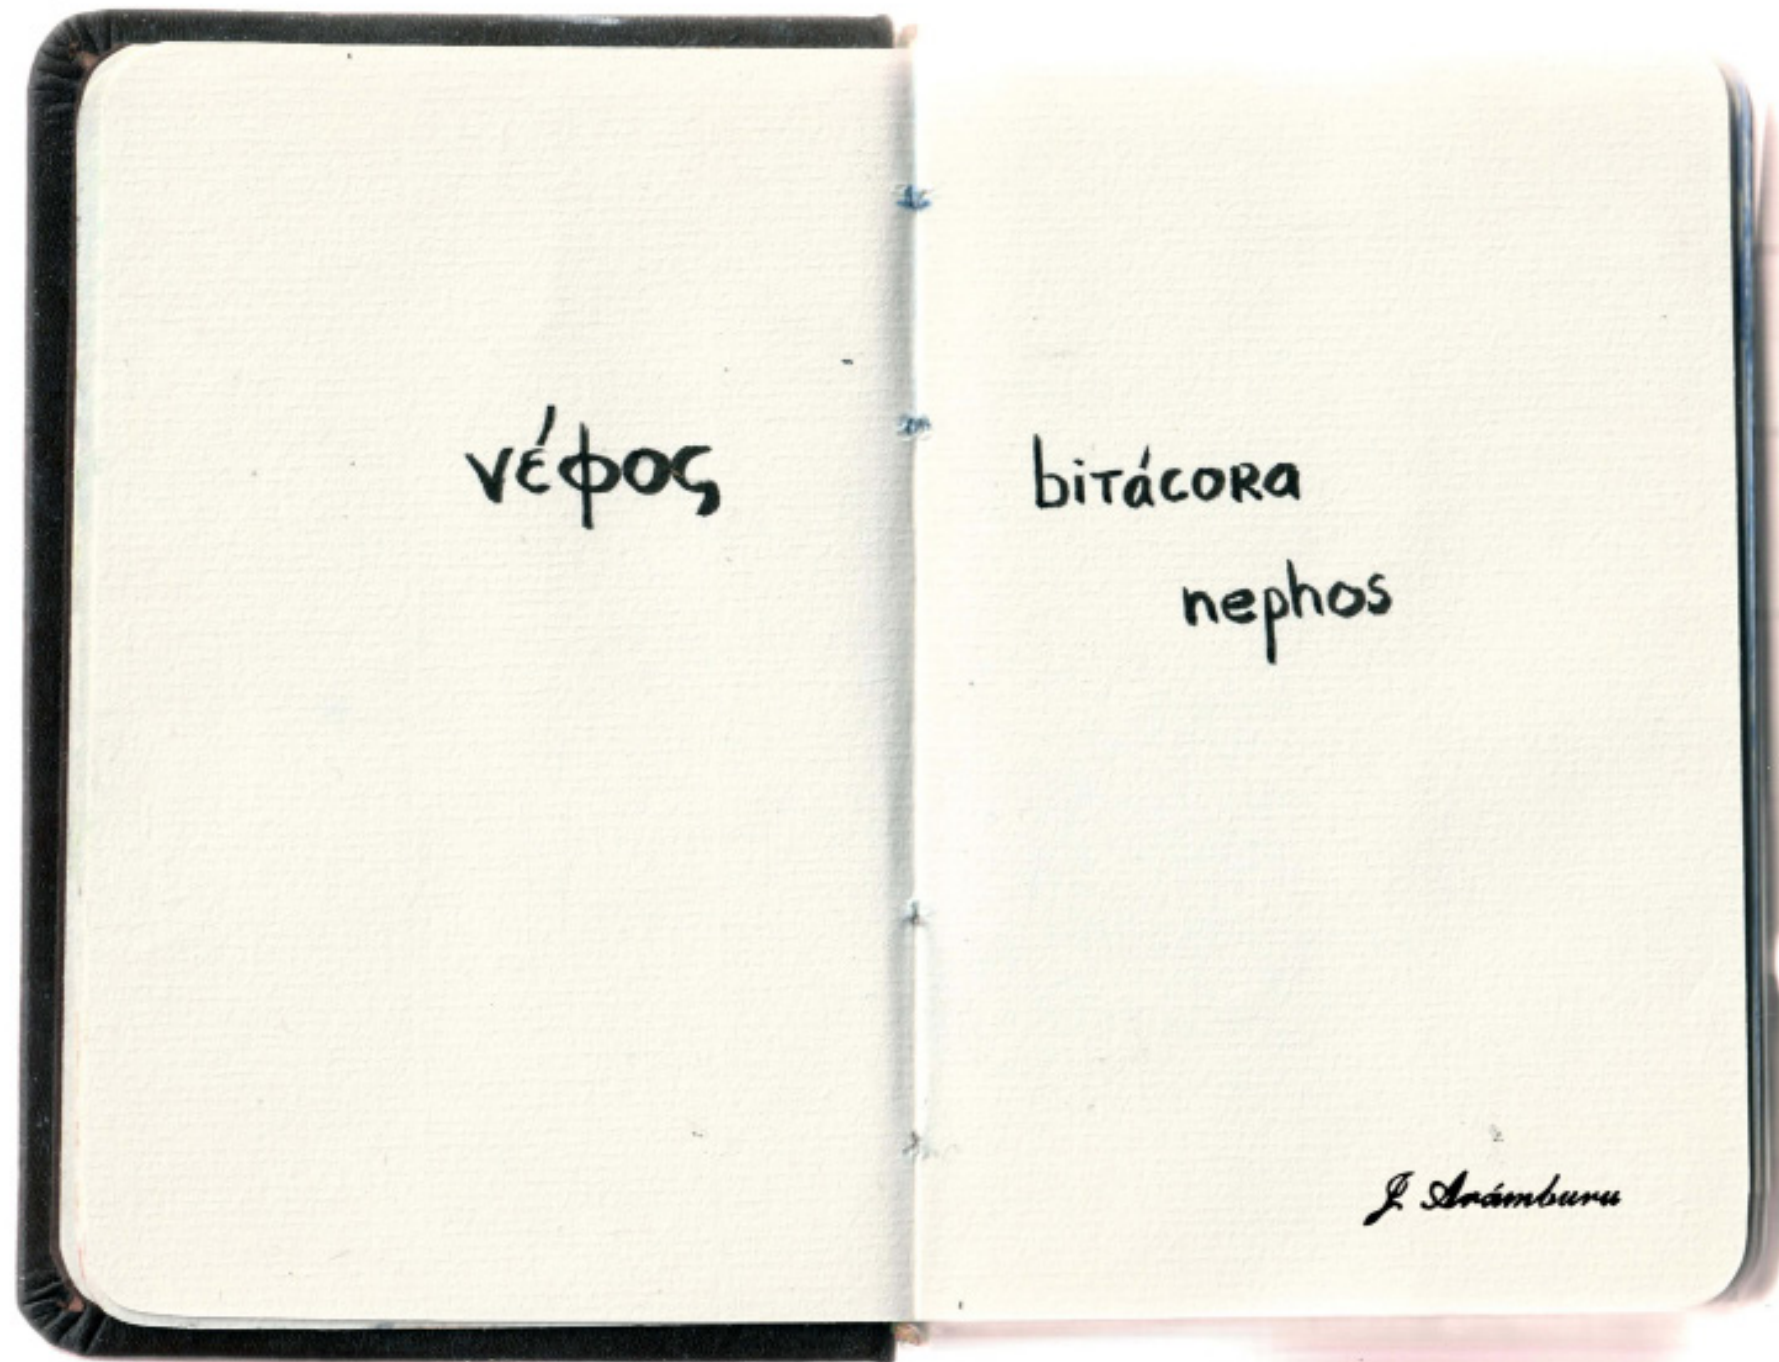 νέφος
bitácora
nephos
J Arámburu